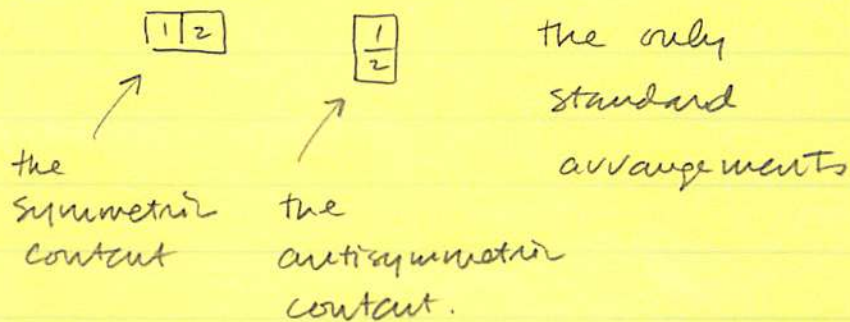 1 2
1
2
the only
standard
arrangements
the
symmetric
content
the
antisymmetric
content.